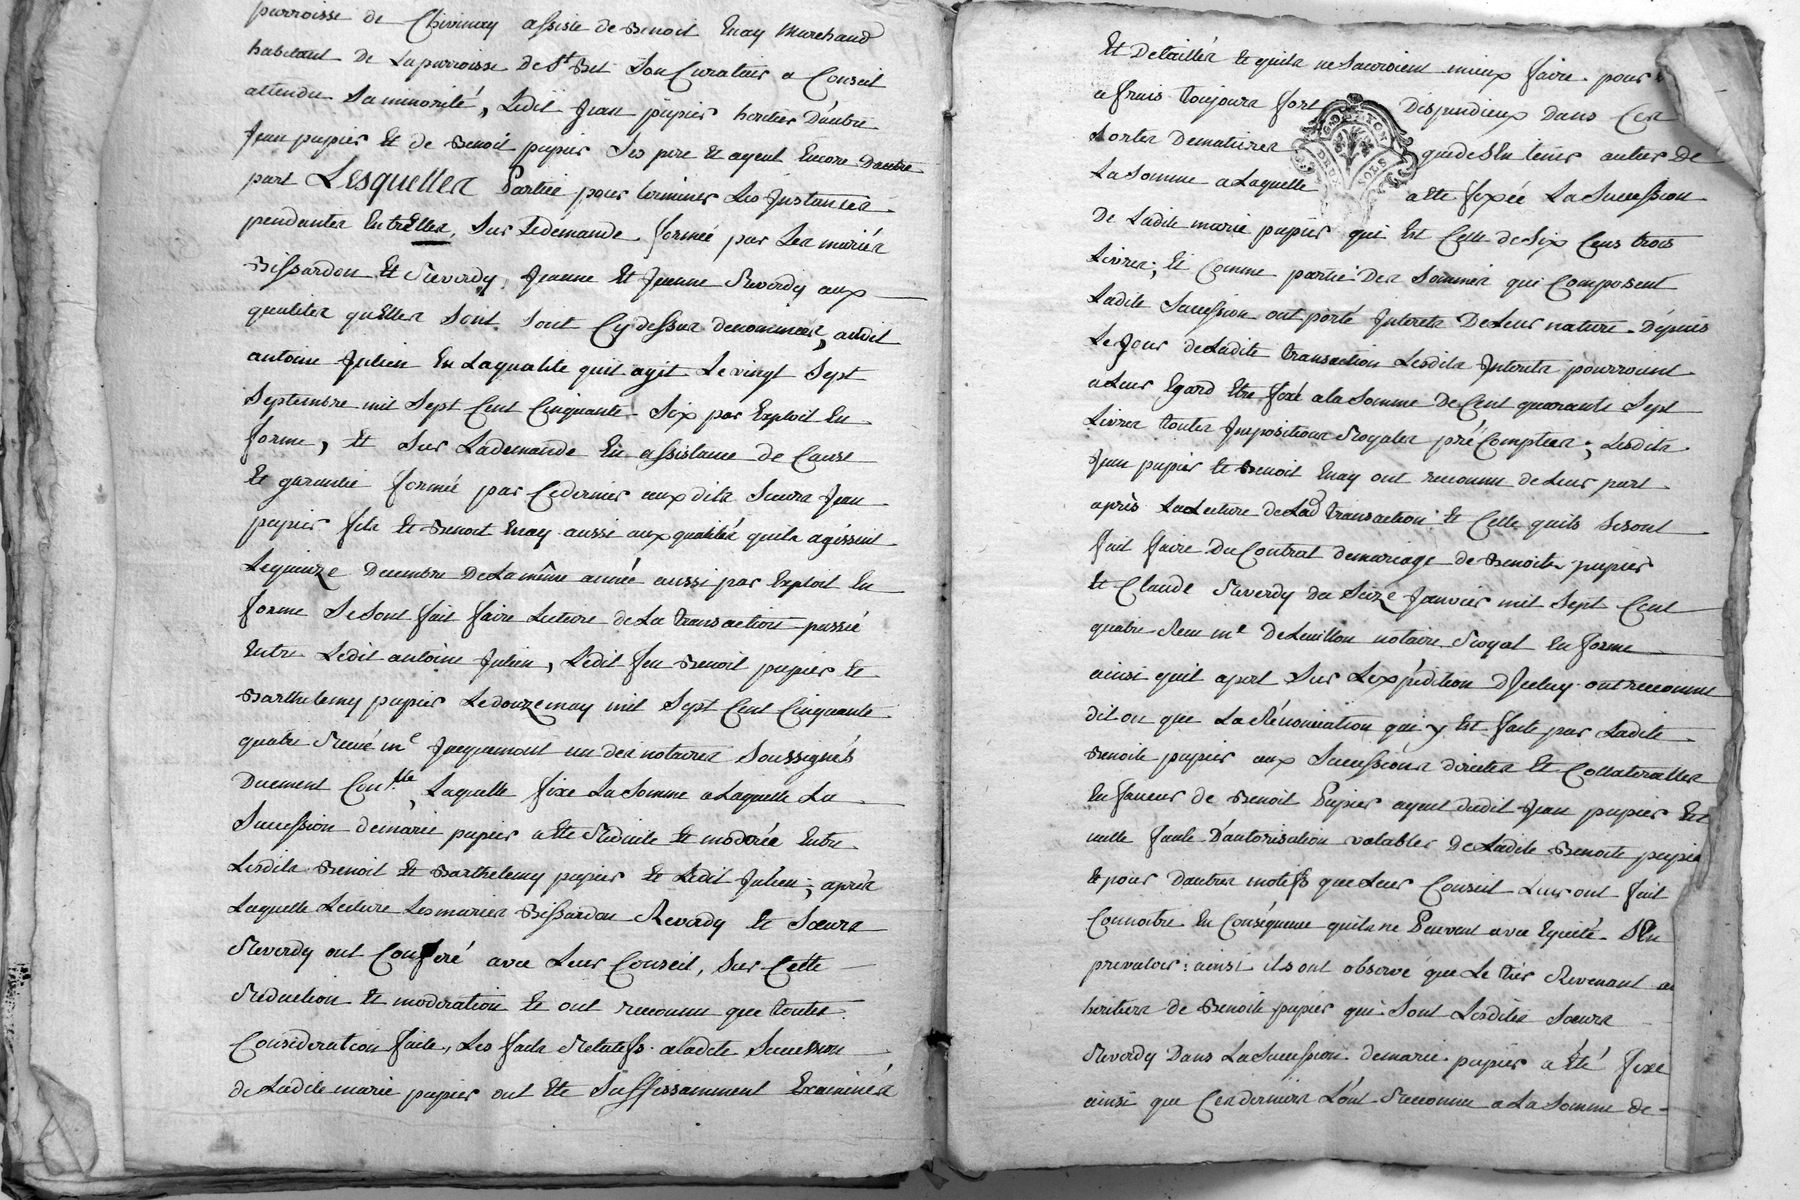 parroisse de Chivinay assisté de Benoit Enay Marchand
habitant de La parroisse de St Bel Son Curateur a Conseil
attendu Sa minorité, Ledit Jean papier heritier D'autre
Jean papier Et de Benoit papier Ses pere Et ayeul Encore D'autre
part Lesquelles Partie pour terminer Les Instances
pendantes Entr'Elles, Sur Ledemande formée par Les mariés
Bissardon Et Reverdy, Jeanne Et Jeanne Reverdy aux
qualités qu'Elles Sont Sont Cy dessus denommées, audit
antoine Julien En Laqualité quil agit Le vingt Sept
Septembre mil Sept Cent Cinquante Six par Exploit En
forme, Et Sur Lademande En assistance de Cause
Et garantie formée par Cedernier aux dits Sieurs Jean
papier fils Et Benoit Enay aussi aux qualités quils agissent
Lequinze Decembre De La même année aussi par Exploit En
forme Se Sont fait faire Lecture de La transaction passée
Entre Ledit antoine Julien, Ledit feu Benoit papier Et
Barthelemy papier Ledouze may mil Sept Cent Cinquante
quatre Receue me Jacquemont un des notaires Soussignés
Duement Conlle, Laquelle fixe La Somme a Laquelle La
Succession demarie papier a Eté Reduite Et moderée Entre
Lesdits Benoit Et Barthelemy papier Et Ledit Julien; après
Laquelle Lecture Les maries Bissardon Reverdy Et Soeurs
Reverdy ont Conferé avec Leur Conseil, Sur Cette
Reduction Et moderation Et ont reconnu que toutes
Consideration faite, Les faits Relatifs a ladite Succession
de Ladite marie papier ont Eté Suffissamment Examinés
Et Detaillés Et quils ne Sauroient mieux faire pour
a frais toujours fort Dispendieux Dans Ces
Sortes Dematieres que de S'En tenir autier De
La Somme a Laquelle a Eté fixée La Succession
De Ladite marie papier qui Est Celle de Six Cens trois
Livres; Et Comme partie Des Sommes qui Composent
Ladite Succession ont porté Interets De Leur nature Depuis
Le Jour de Ladite transaction Lesdits Interets pourroient
a Leur Egard Etre fixé a la Somme De Cent quarante Sept
Livres toutes Impositions Royales pré Comptées; Lesdits
Jean papier Et Benoit Enay ont reconnu de Leur part
après La Lecture de Lad transaction Et Celle quils Se sont
fait faire Du Contrat demariage de Benoite papier
Et Claude Reverdy du Seize Janvier mil Sept Cent
quatre Receu me Delevillon notaire Royal En forme
ainsi quil apert Sur L'expédition d'Iceluy ont reconnu
dit on que La Rénonciation qui y Est faite par Ladite
Benoite papier aux Successions directes Et Collateralles
En faveur de Benoit Papier ayeul dudit Jean papier Est
nulle faute D'autorisation valables de Ladite Benoite papier
Et pour D'autres motifs que Leur Conseil Leur ont fait
Connoitre En Conséquence quils ne Peuvent avec Equité S'En
prevaloir: ainsi ils ont observé que Le tiers Revenant au
heritiers de Benoite papier qui Sont Lesdites Soeurs
Reverdy Dans La Succession demarie papier a Eté fixé
ainsi que Ces dernieres L'ont Reconnu a La Somme de
G. DE LYON
DEUX SOLS